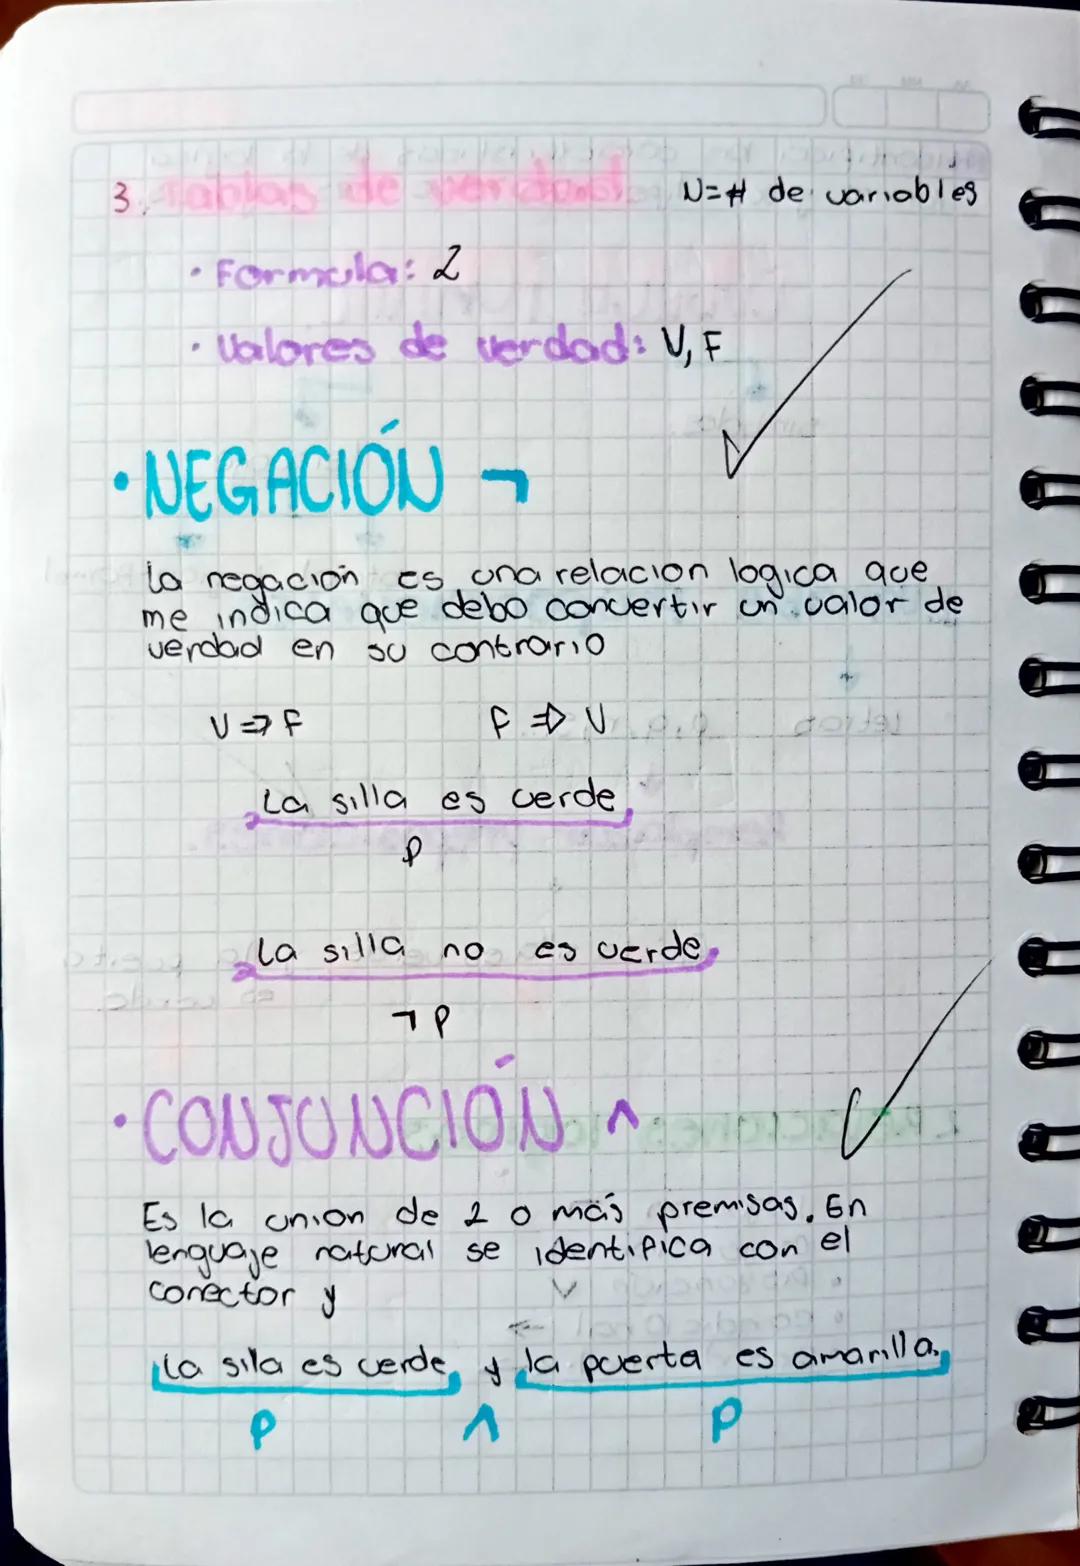 3. Tablas de verdad N=# de variables
• Formula: 2
• Valores de verdad: V, F
• NEGACIÓN ¬
La negación es una relacion logica que
me indica que debo convertir un valor de
verdad en su contrario
V ⇒ F F ⇒ V
La silla es verde
P
La silla no es verde
¬ P
• CONJUNCIÓN ^
Es la union de 2 o más premisas. En
lenguaje natural se identifica con el
conector y
La sila es verde y la puerta es amarilla.
P ^ P